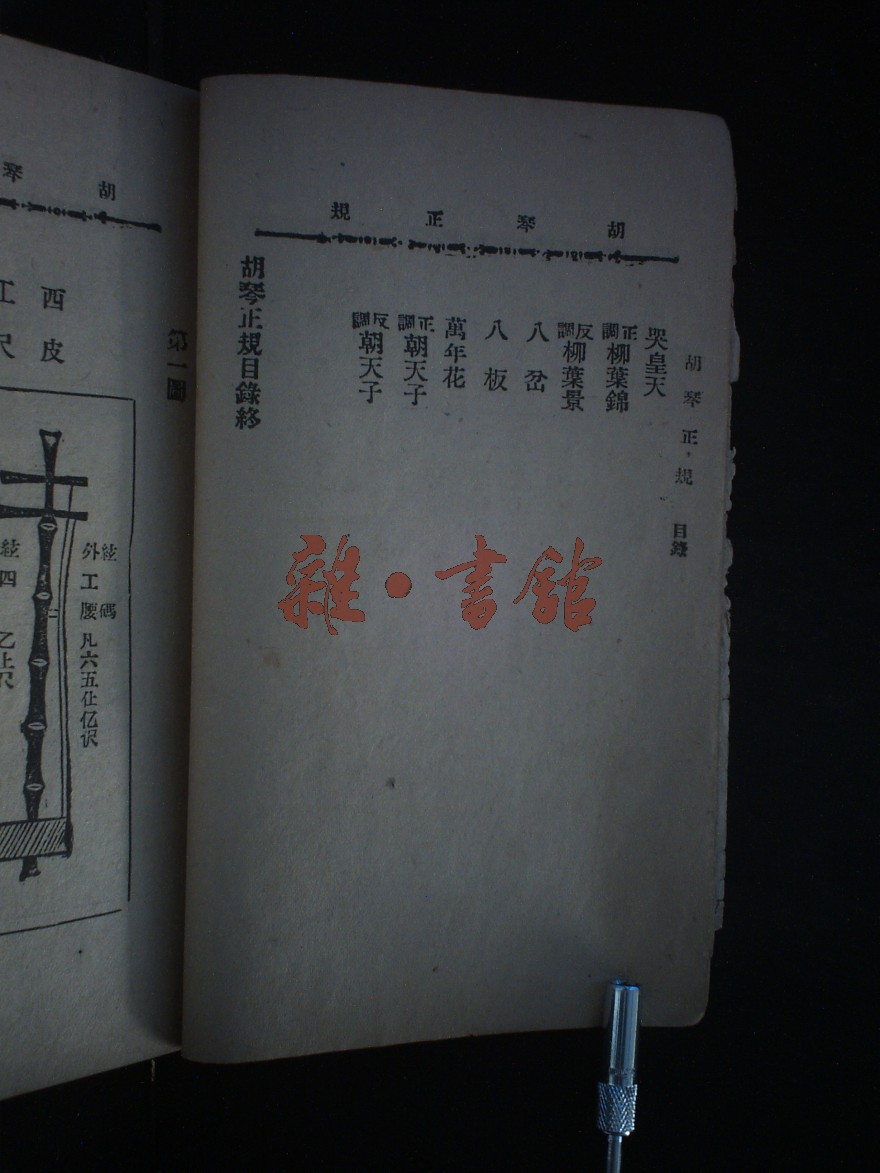 胡琴正規
胡琴正規 目錄
哭皇天
正調柳葉錦
反調柳葉景
八岔
八板
萬年花
正調朝天子
反調朝天子
胡琴正規目錄終
雜·書館
胡琴
第一圖
西皮
工尺
外絃 工 腰碼 凡六五仩亿伬
絃四